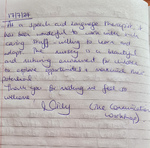 17/7/24
As a Speech and Language Therapist, it
has been wonderful to work with such
caring staff, willing to learn and
adapt. The nursery is a beautiful
and nurturing environment for children
to explore opportunities & reach their
potential.
Thank you for making me feel so
welcome!